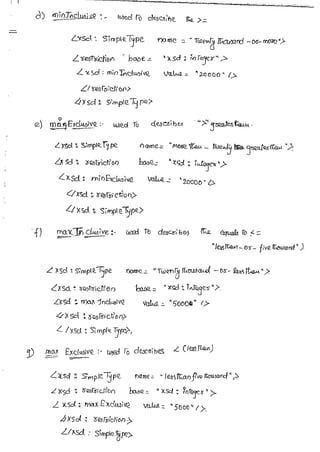 d) minInclusive :- used to describe the >=
<xsd : SimpleType name = "Twenty thousand -or- more">
<xsd : restriction base = "xsd : integer">
<xsd : minInclusive value = "20000" />
</xsd : restriction>
</xsd : Simple Type>
e) minExclusive :- used to describes ">" greater than.
<xsd : SimpleType name = "More than - twenty greater than">
<xsd : restriction base = "xsd : integer">
<xsd : minExclusive value = "20000" />
</xsd : restriction>
</xsd : SimpleType>
f) maxInclusive :- used to describes the equals to <=
"less than -or- five thousand")
<xsd : SimpleType name = "Twenty thousand -or- less than">
<xsd : restriction base = "xsd : integer">
<xsd : max Inclusive value = "5000" />
</xsd : restriction>
</xsd : Simple Type>,
g) max Exclusive :- used to describes < (less than)
<xsd : SimpleType name = "less than five thousand">
<xsd : restriction base = "xsd : integer">
<xsd : max Exclusive value = "5000" />
</xsd : restriction>
</xsd : SimpleType>